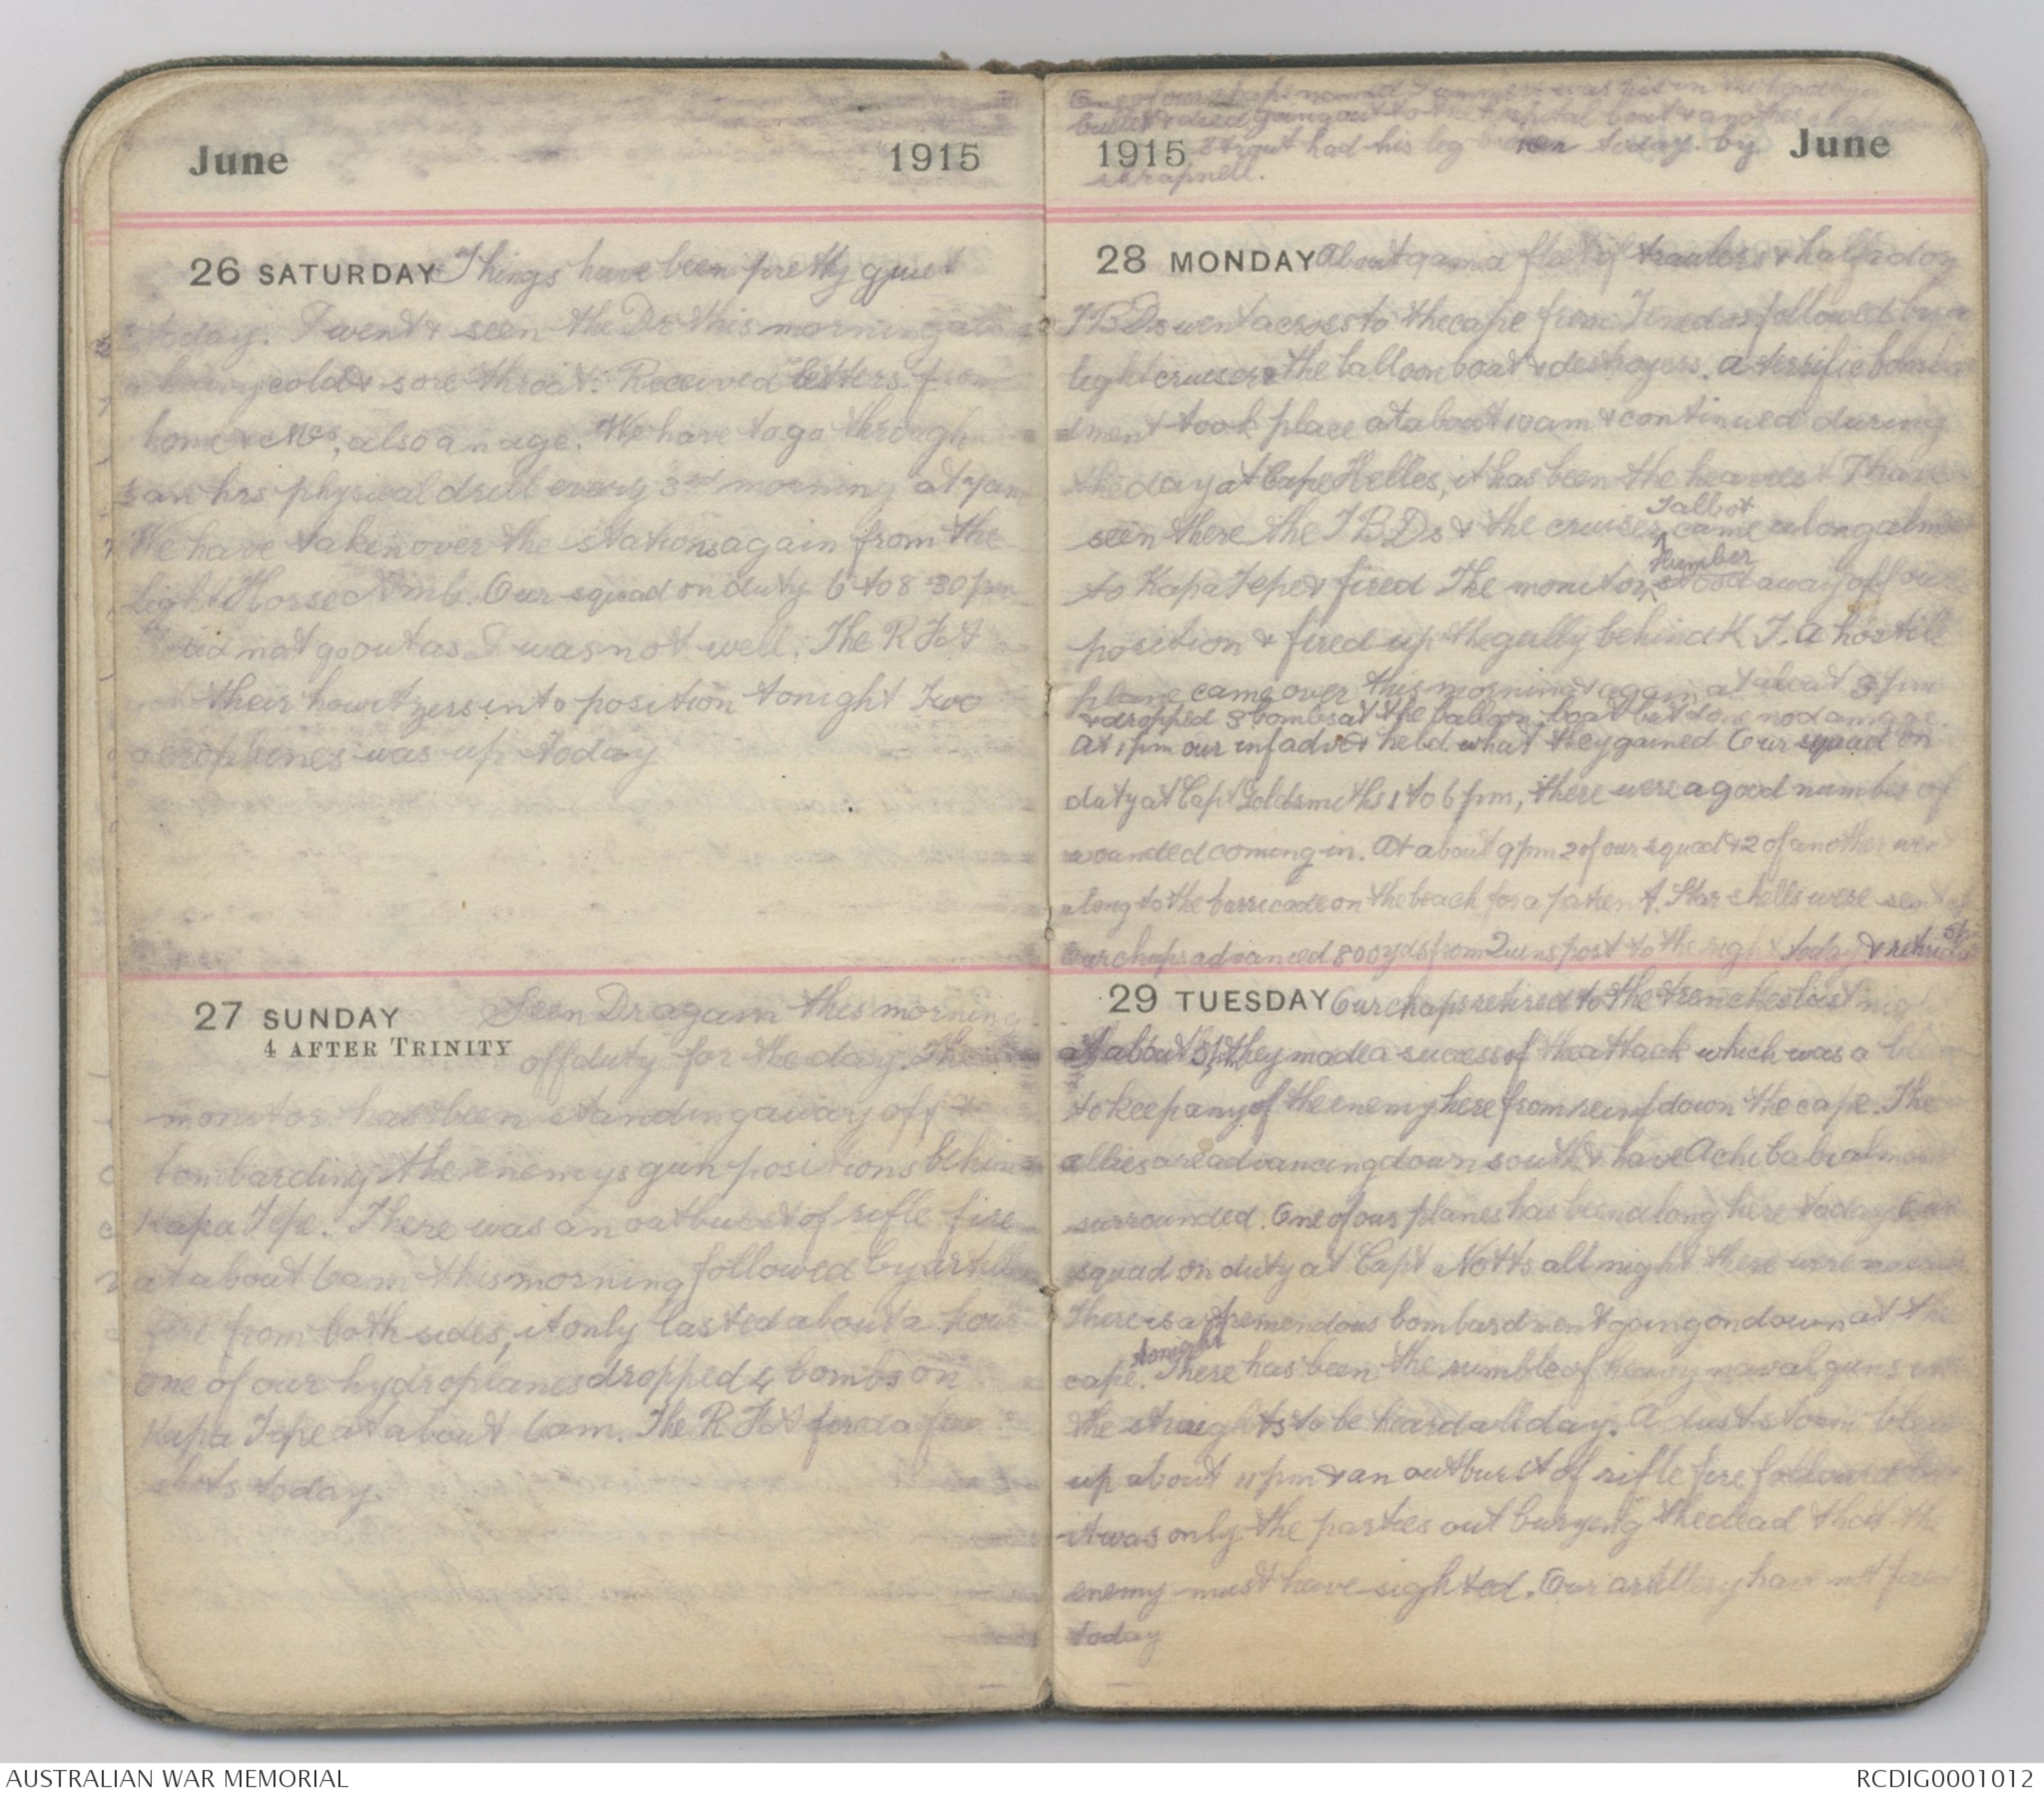 June 1915
26 SATURDAY Things have been pretty quiet
today. I went & seen the Dr this morning
cold & sore throat. Received letters from
home & , also an age. We have to go through
an hrs physical drill every 3rd morning at 7am
We have taken over the stations again from the
Light Horse Amb. Our squad on duty 6 to 8.30 pm
did not go out as I was not well. The R F A
their howitzers into position tonight Two
aeroplanes was up today
27 SUNDAY
4 AFTER TRINITY
Seen Dr again this morning
off duty for the day. The
monitor has been standing away off &
bombarding the enemys gun positions behind
Kapa Tepe. There was an outburst of rifle fire
at about 6am this morning followed by
fire from both sides, it only lasted about a hour
one of our hydroplanes dropped 4 bombs on
Kapa Tepe at about 6am. The R F A fired a few
shots today.
One of our chaps named was hit in the head by a
bullet & died going out to the hospital boat & another
1915 June
had his leg broken today by
shrapnell.
28 MONDAY About 9am a fleet of trawlers & half a doz
TBDs went across to the cape from Tenedos followed by a
light cruiser & the balloon boat & destroyers. A terrific
ment took place at about 10am & continued during
the day at Cape Helles, it has been the heaviest I have
seen there the TBDs & the cruiser Talbot came along
to Kapa Tepe & fired The monitor Humber stood away off our
position & fired up the gully behind K T. A hostile
plane came over this morning & again at about 3 pm
& dropped 3 bombs at the balloon boat but done no damage.
At 1pm our inf adv & held what they gained Our squad on
duty at Capt Goldsmiths 1 to 6 pm, there were a good number of
wounded coming in. At about 9pm 2 of our squad & 2 of another went
along to the barricade on the beach for a patient. Star shells were sent up
Our chaps advanced 800yds from Quins post to the right today &
29 TUESDAY Our chaps retired to the trenches last
at about they made a success of the attack which was a
to keep any of the enemy here from reinf down the cape. The
allies are advancing down south & have Achi baba
surrounded. One of our planes has been along here today Our
squad on duty at Capt Notts all night there were
There is a tremendous bombardment going on down at the
cape tonight. There has been the rumble of heavy naval guns in
the straights to be heard all day. A dust storm blew
up about & an outburst of rifle fire followed
it was only the parties out burying the dead that the
enemy must have sighted. Our artillery have not fired
today
AUSTRALIAN WAR MEMORIAL RCDIG0001012